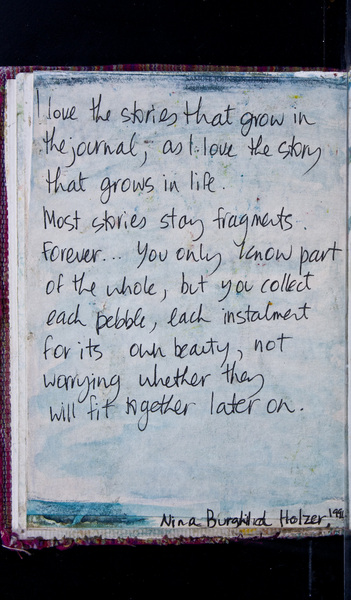 I love the stories that grow in
the journal, as I love the story
that grows in life.
Most stories stay fragments.
Forever... You only know part
of the whole, but you collect
each pebble, each instalment
for its own beauty, not
worrying whether they
will fit together later on.
Nina Holzer,